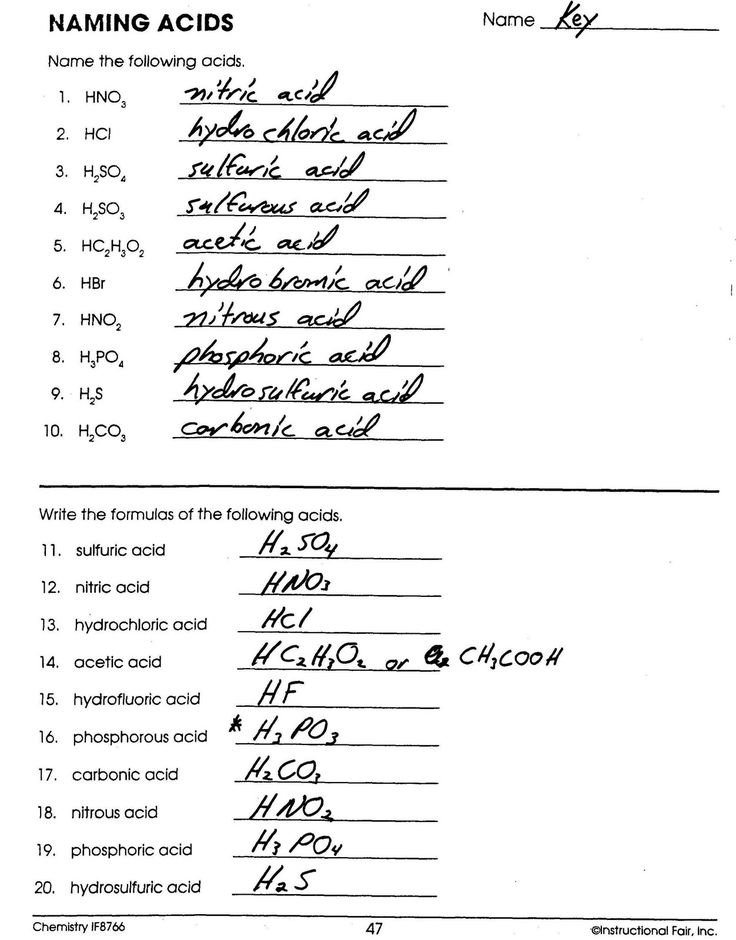 NAMING ACIDS Name Key
Name the following acids.
1. HNO₃ nitric acid
2. HCl hydrochloric acid
3. H₂SO₄ sulfuric acid
4. H₂SO₃ sulfurous acid
5. HC₂H₃O₂ acetic acid
6. HBr hydrobromic acid
7. HNO₂ nitrous acid
8. H₃PO₄ phosphoric acid
9. H₂S hydrosulfuric acid
10. H₂CO₃ carbonic acid
Write the formulas of the following acids.
11. sulfuric acid H₂SO₄
12. nitric acid HNO₃
13. hydrochloric acid HCl
14. acetic acid HC₂H₃O₂ or CH₃COOH
15. hydrofluoric acid HF
16. phosphorous acid * H₃PO₃
17. carbonic acid H₂CO₃
18. nitrous acid HNO₂
19. phosphoric acid H₃PO₄
20. hydrosulfuric acid H₂S
Chemistry IF8766 47 ©Instructional Fair, Inc.